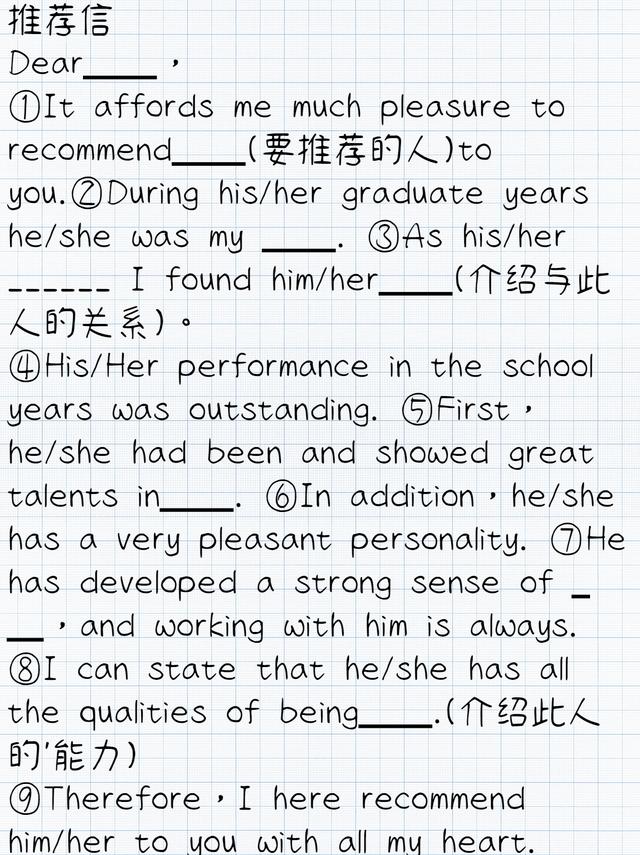 推荐信
Dear____，
①It affords me much pleasure to
recommend____(要推荐的人)to
you.②During his/her graduate years
he/she was my ____. ③As his/her
______ I found him/her____(介绍与此
人的关系)。
④His/Her performance in the school
years was outstanding. ⑤First，
he/she had been and showed great
talents in____. ⑥In addition，he/she
has a very pleasant personality. ⑦He
has developed a strong sense of _
__，and working with him is always.
⑧I can state that he/she has all
the qualities of being____.(介绍此人
的'能力)
⑨Therefore，I here recommend
him/her to you with all my heart.